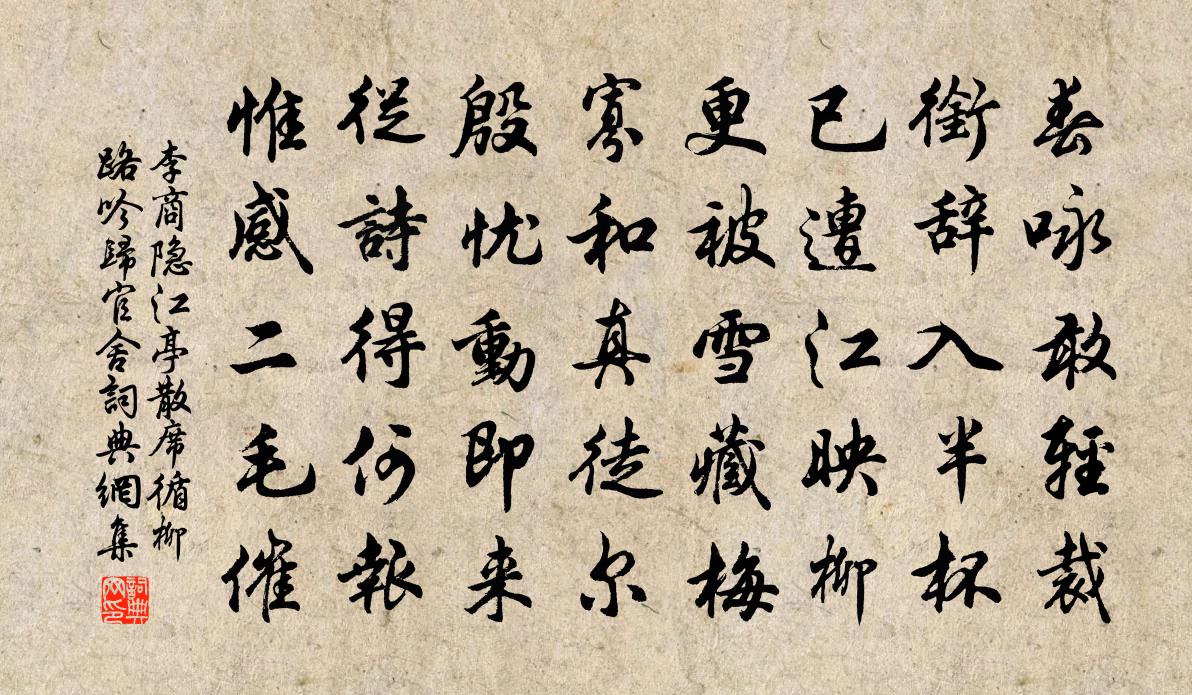 春咏敢輕裁
銜辞入半杯
已遭江映柳
更被雪藏梅
寡和真徒尔
殷忧動即来
從詩得何報
惟感二毛催
李商隐江亭散席循柳
路吟歸官舍詞典網集
詞典網印